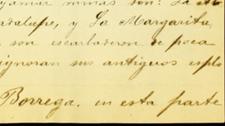 minas son: La
Guadalupe, y La Margarita
son escarbaderon de poca
ignoran sus antiguos esplo
Borrega. en esta parte